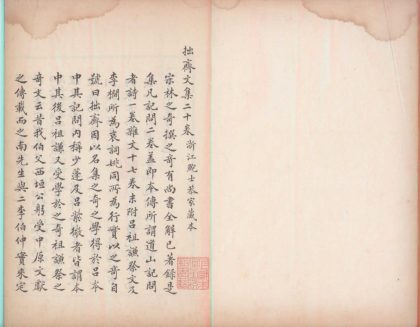 拙齋文集二十卷浙江鮑士恭家藏本
宋林之奇撰之奇有尚書全解已著錄是
集凡記問二卷蓋即本傳所謂道山記問
者詩一卷雜文十七卷末附呂祖謙祭文及
李樗所為哀詞姚同所為行實以之奇自
號曰拙齋因以名集之奇之學得於呂本
中其記問内稱少蓬及呂紫微者皆謂本
中其後呂祖謙又受學於之奇祖謙祭之
奇文云昔我伯父西垣公躬受中原文獻
之傳載而之南先生與二李伯仲實來定